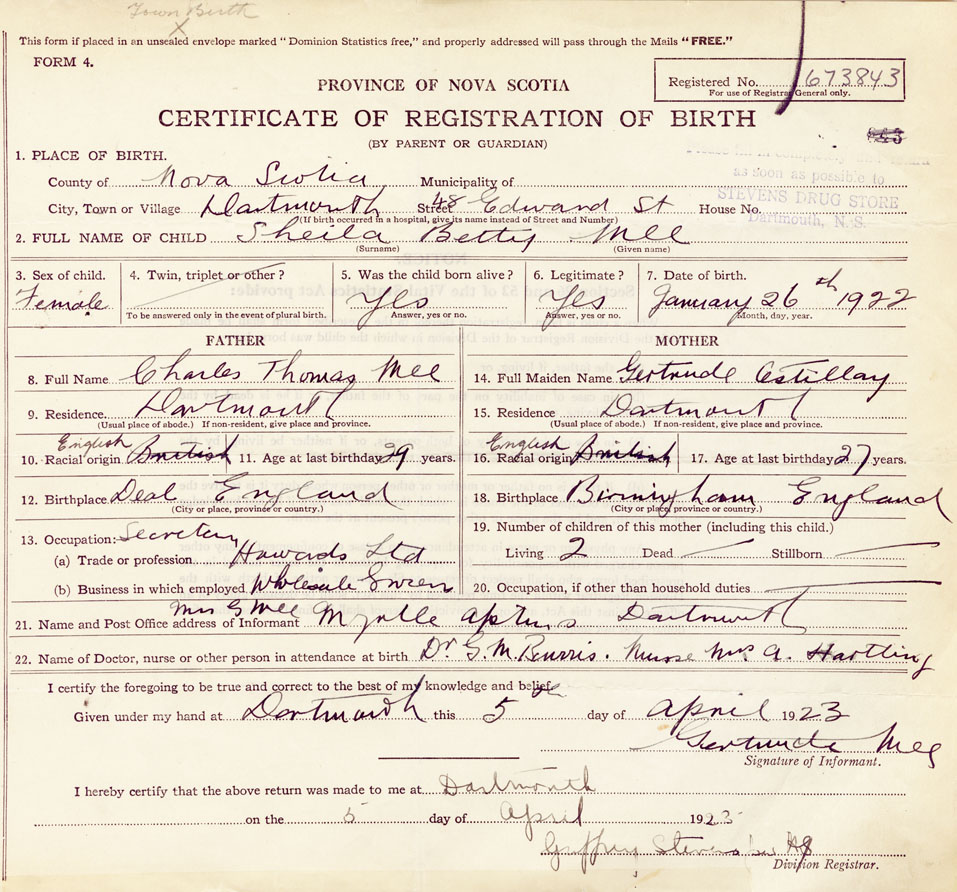 Town Birth
X
This form if placed in an unsealed envelope marked "Dominion Statistics free," and properly addressed will pass through the Mails "FREE."
FORM 4.
Registered No. 673843
For use of Registrar General only.
PROVINCE OF NOVA SCOTIA
CERTIFICATE OF REGISTRATION OF BIRTH
(BY PARENT OR GUARDIAN)
as soon as possible to
STEVENS DRUG STORE
Dartmouth, N. S.
1. PLACE OF BIRTH.
County of Nova Scotia Municipality of
City, Town or Village Dartmouth Street 48 Edward St House No.
(If birth occurred in a hospital, give its name instead of Street and Number)
2. FULL NAME OF CHILD Sheila Betty Mee
(Surname) (Given name)
3. Sex of child. 4. Twin, triplet or other? 5. Was the child born alive? 6. Legitimate? 7. Date of birth.
Female Yes Yes January 26th 1922
To be answered only in the event of plural birth. Answer, yes or no. Answer, yes or no. Month, day, year.
FATHER
8. Full Name Charles Thomas Mee
9. Residence. Dartmouth
(Usual place of abode.) If non-resident, give place and province.
English
10. Racial origin British 11. Age at last birthday 39 years.
12. Birthplace Deal England
(City or place, province or country.)
13. Occupation: Secretary
(a) Trade or profession. Howards Ltd
(b) Business in which employed Wholesale
MOTHER
14. Full Maiden Name Gertrude
15. Residence Dartmouth
(Usual place of abode.) If non-resident, give place and province.
English
16. Racial origin British 17. Age at last birthday 27 years.
18. Birthplace Birmingham England
(City or place, province or country.)
19. Number of children of this mother (including this child.)
Living 2 Dead Stillborn
20. Occupation, if other than household duties
21. Name and Post Office address of Informant Mrs G Mee Myrtle Dartmouth
22. Name of Doctor, nurse or other person in attendance at birth Dr. G. M. Burris. Nurse Mrs A. Hartling
I certify the foregoing to be true and correct to the best of my knowledge and belief.
Given under my hand at Dartmouth this 5 day of April 1923
Gertrude Mee
Signature of Informant.
I hereby certify that the above return was made to me at Dartmouth
on the 5 day of April 1923
Stevens
Division Registrar.